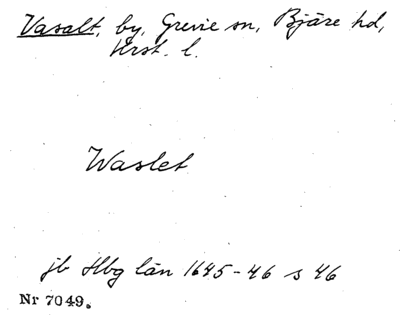 Vasalt, by, Grevie sn, Bjäre hd,
Krst. l.
Waslet
jb Hbg län 1645-46 s 46
Nr 7049.